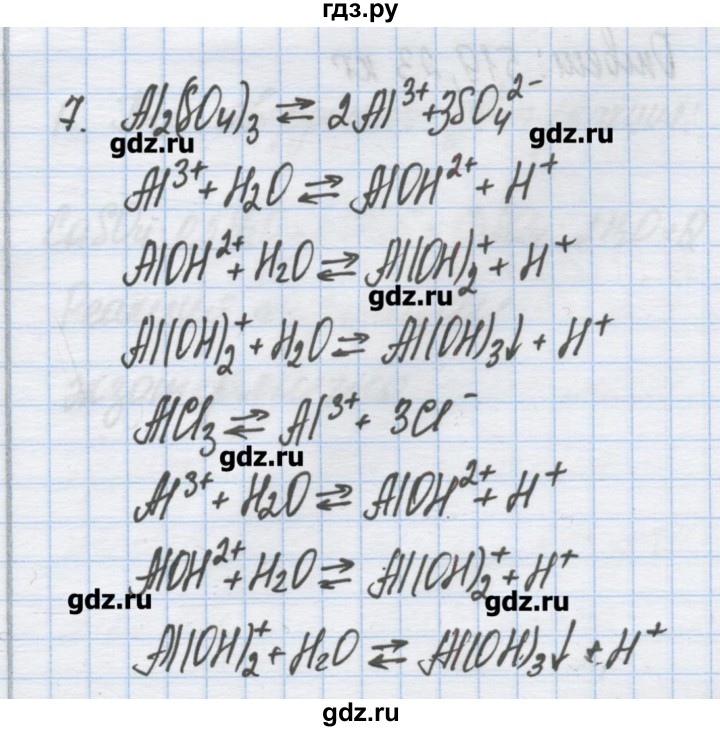 гдз.ру
7. Al₂(SO₄)₃ ⇄ 2Al³⁺+3SO₄²⁻
gdz.ru
gdz.ru
Al³⁺+H₂O ⇄ AlOH²⁺+H⁺
AlOH²⁺+H₂O ⇄ Al(OH)₂⁺+H⁺
gdz.ru
Al(OH)₂⁺+H₂O ⇄ Al(OH)₃↓+H⁺
AlCl₃ ⇄ Al³⁺+3Cl⁻
gdz.ru
Al³⁺+H₂O ⇄ AlOH²⁺+H⁺
AlOH²⁺+H₂O ⇄ Al(OH)₂⁺+H⁺
gdz.ru
gdz.ru
Al(OH)₂⁺+H₂O ⇄ Al(OH)₃↓+H⁺
gdz.ru